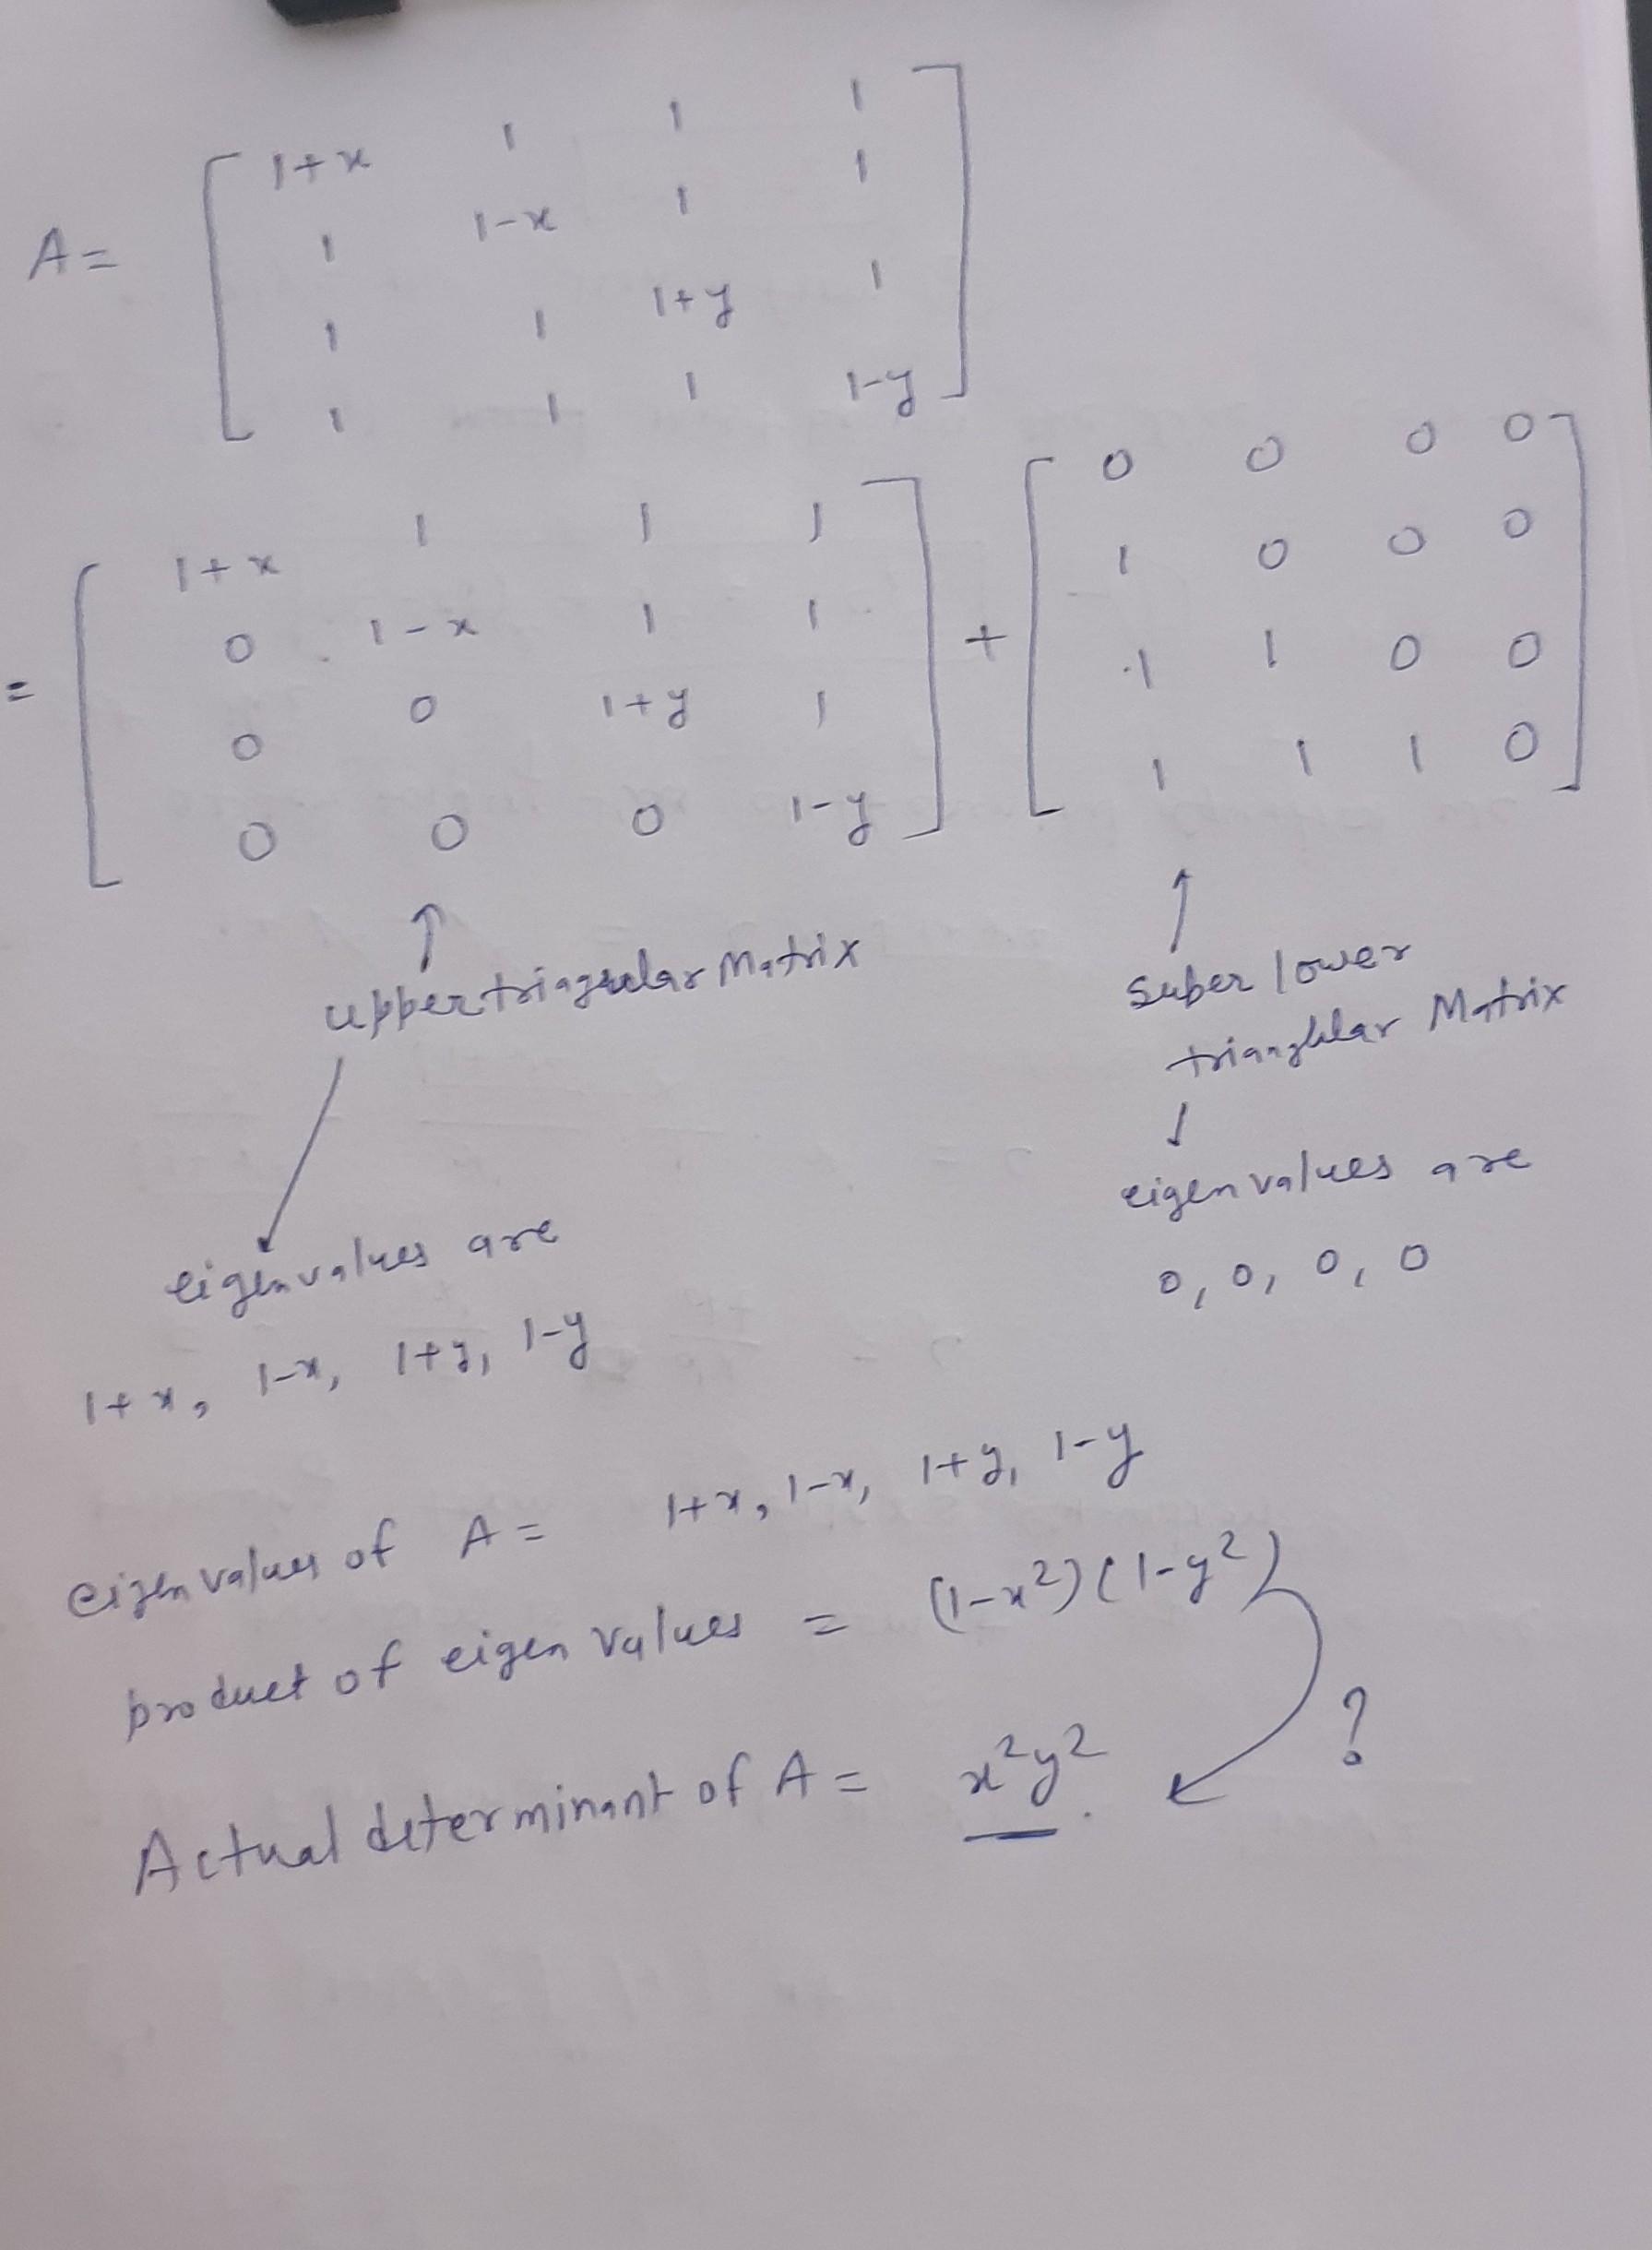 A = [ 1+x 1 1 1
1 1-x 1 1
1 1 1+y 1
1 1 1 1-y ]
= [ 1+x 1 1 1
0 1-x 1 1
0 0 1+y 1
0 0 0 1-y ] + [ 0 0 0 0
1 0 0 0
1 1 0 0
1 1 1 0 ]
↑
upper triangular Matrix
↑
Super lower
triangular Matrix
↓
eigen values are
0, 0, 0, 0
eigenvalues are
1+x, 1-x, 1+y, 1-y
eigen values of A = 1+x, 1-x, 1+y, 1-y
product of eigen values = (1-x²)(1-y²)
?
Actual determinant of A = x²y².